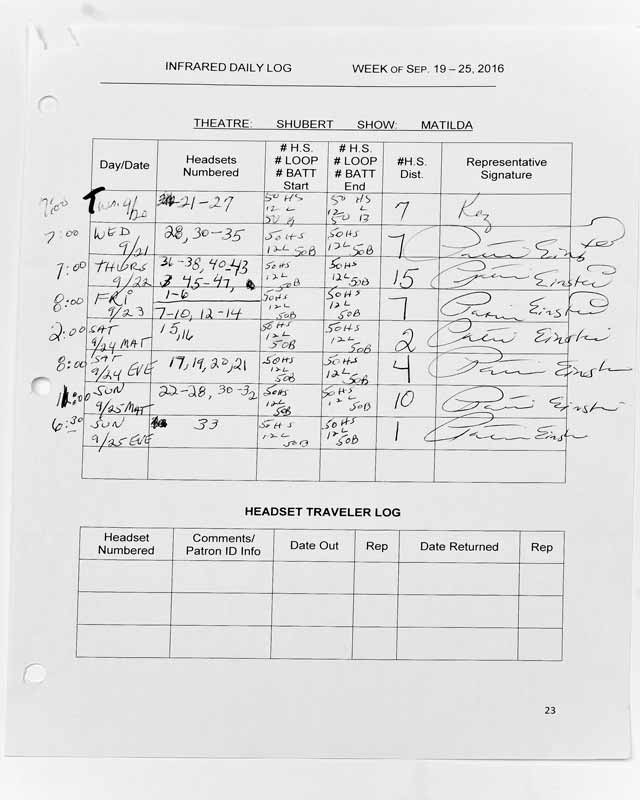 INFRARED DAILY LOG WEEK OF SEP. 19 – 25, 2016
THEATRE: SHUBERT SHOW: MATILDA
Day/Date Headsets Numbered # H.S. # LOOP # BATT Start # H.S. # LOOP # BATT End #H.S. Dist. Representative Signature
7:00 Tues. 9/20 21-27 50 HS 12 L 50 B 50 HS 12 L 50 B 7 Kay
7:00 WED 9/21 28, 30-35 50HS 12L 50B 50HS 12L 50B 7 Patri Einstei
7:00 THURS 9/22 36-38, 40-43 45-47, 50HS 12L 50B 50HS 12L 50B 15 Patri Einstei
8:00 FRI 9/23 1-6 7-10, 12-14 50HS 12L 50B 50HS 12L 50B 7 Patri Einstei
2:00 SAT 9/24 MAT 15, 16 50HS 12L 50B 50HS 12L 50B 2 Patri Einstei
8:00 SAT 9/24 EVE 17, 19, 20, 21 50HS 12L 50B 50HS 12L 50B 4 Patri Einstei
1:00 SUN 9/25 MAT 22-28, 30-32 50HS 12L 50B 50HS 12L 50B 10 Patri Einstei
6:30 SUN 9/25 EVE 33 50HS 12L 50B 50HS 12L 50B 1 Patri Einstei
HEADSET TRAVELER LOG
Headset Numbered Comments/ Patron ID Info Date Out Rep Date Returned Rep
23